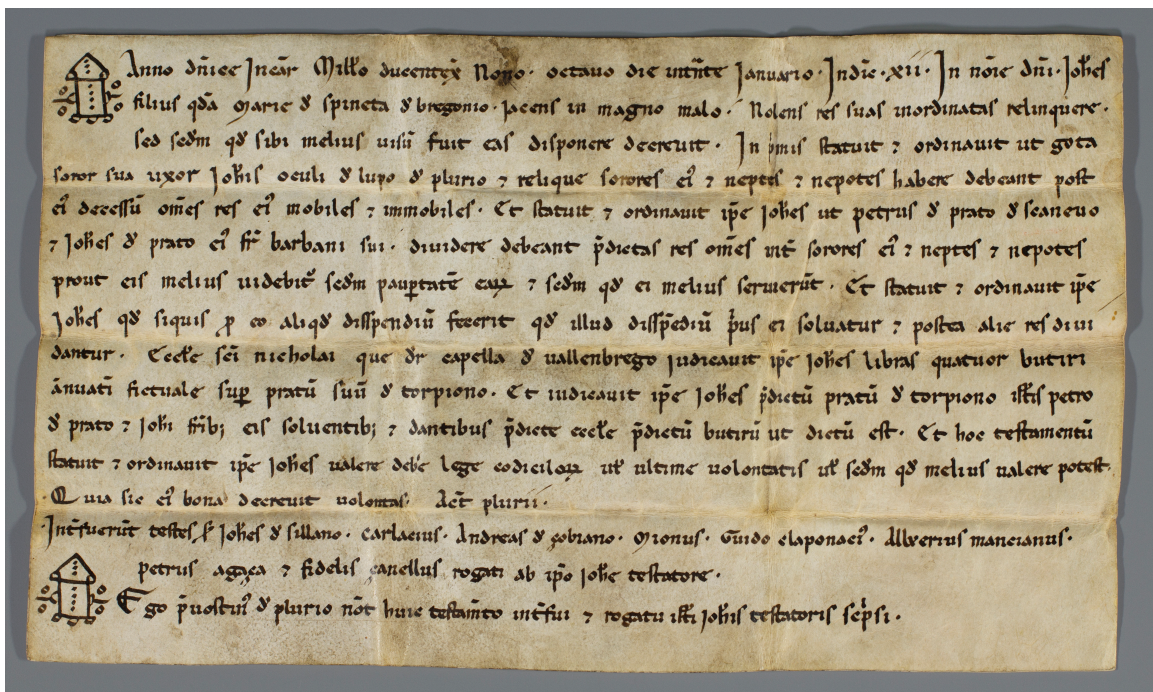 Anno dñice Incar̃ Mill̃o ducentex̃ Nono · octauo die int̃nte Januario · Indic̃ · xii · In nõie dñi · Joh̃es
filius qd̃a Marie d̃ spineta d̃ bregonio · Jacens in magno malo · Nolens res suas inordinatas relinquere ·
sed sed̃m qd̃ sibi melius uisũ fuit eas disponere decreuit · In p̃mis statuit ⁊ ordinauit ut gota
soror sua uxor Joh̃is oculi d̃ lupo d̃ plurio ⁊ relique sorores ei᷒ ⁊ neptes ⁊ nepotes habere debeant post
ei᷒ decessũ om̃es res ei᷒ mobiles ⁊ immobiles · Et statuit ⁊ ordinauit ip̃e Joh̃es ut petrus d̃ prato d̃ scanuo
⁊ Joh̃es d̃ prato ei᷒ fr̃ barbani sui · diuidere debeant p̃dictas res om̃es int̃ sorores ei᷒ ⁊ neptes ⁊ nepotes
prout eis melius uidebit᷒ sed̃m paup̱tatẽ eaꝝ ⁊ sed̃m qd̃ ei melius seruierũt · Et statuit ⁊ ordinauit ip̃e
Joh̃es qd̃ siquis ꝓ eo aliqd̃ disspendiũ fecerit qd̃ illud dissp̃ediũ p̃us ei soluatur ⁊ postea alie res diui
dantur · Eccl̃e sc̃i nicholai que dr̃ capella d̃ uallenbrego iudicauit ip̃e Joh̃es libras quatuor butiri
ãnuatĩ fictuale suꝑ pratũ suũ d̃ torpiono · Et iudicauit ip̃e Joh̃es p̃dictũ pratũ d̃ torpiono ist̃is petro
d̃ prato ⁊ Joh̃i fr̃ibꝫ eis soluentibꝫ ⁊ dantibus p̃dicte eccl̃e p̃dictũ butirũ ut dictũ est · Et hoc testamentũ
statuit ⁊ ordinauit ip̃e Joh̃es ualere deb̃e lege codiciloꝝ ul̃ ultime uolontatis ul̃ sed̃m qd̃ melius ualere potest ·
· Quia sic ei᷒ bona decreuit uolontas · Act̃ plurii ·
· Int̃fuerũt testes Joh̃es d̃ sillano · carlacius · Andreas d̃ çobiano · Mionus · Guido claponaci᷒ · Allxerius mancianus ·
petrus agaça ⁊ fidelis çanellus rogati ab ip̃o Joh̃e testatore ·
Ego p̃uostin᷒ d̃ plurio nõt huic testam̃to int̃fui ⁊ rogatu ist̃i Joh̃is testatoris sc̃psi ·